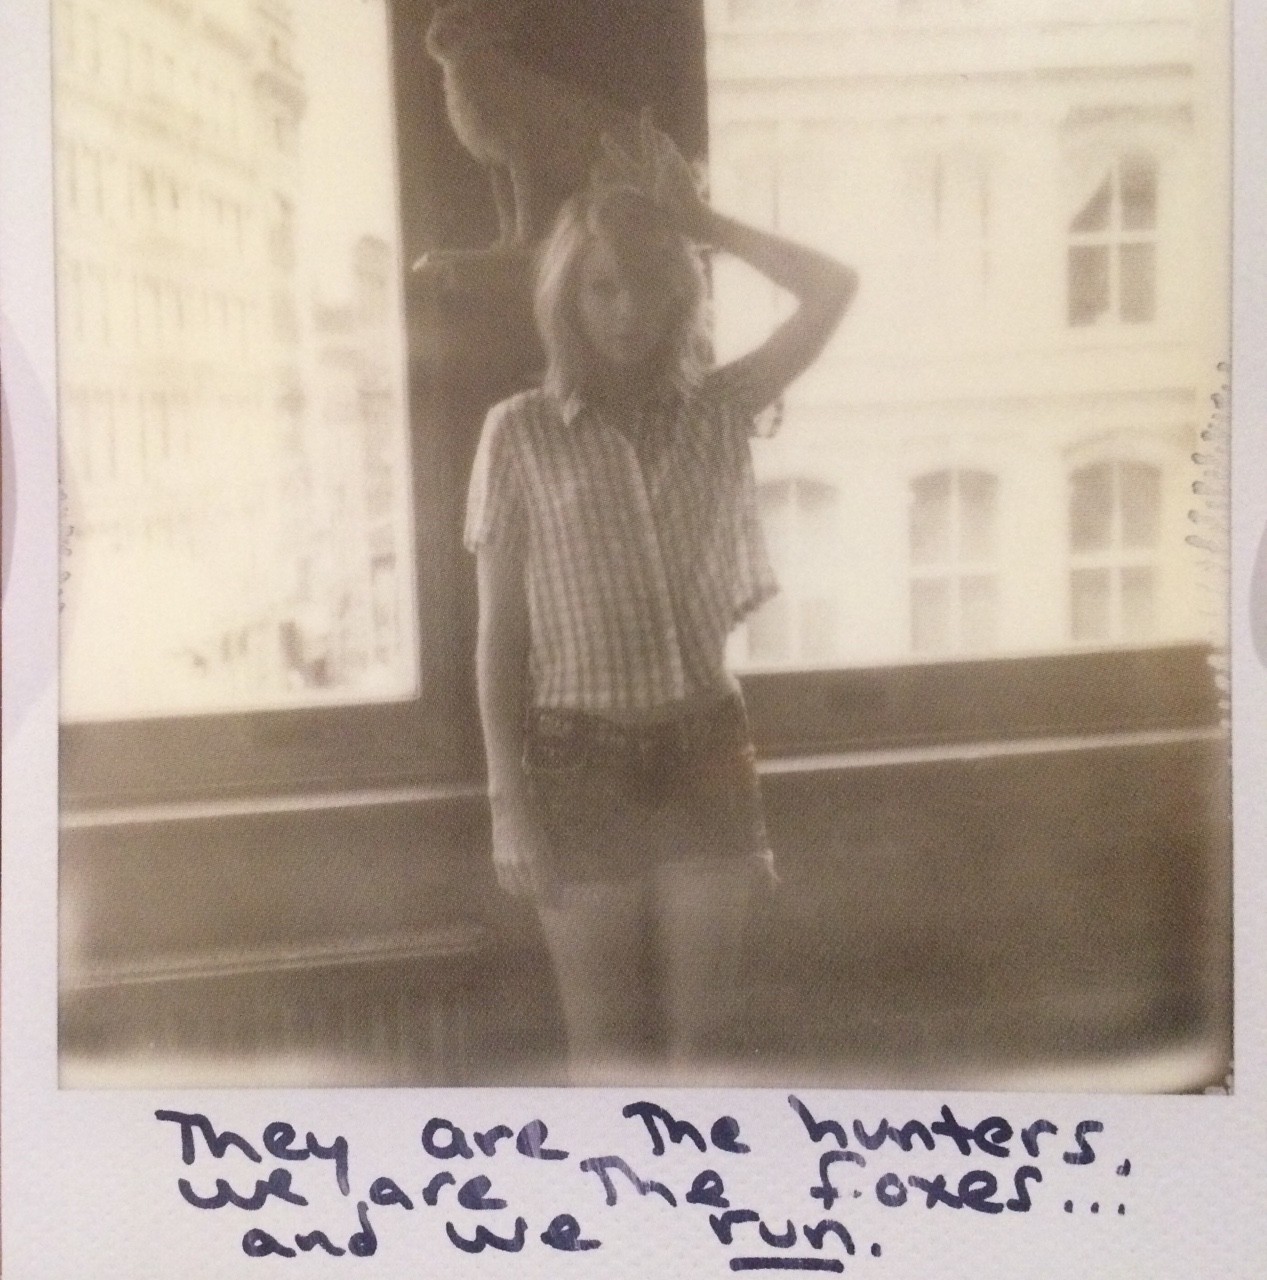 They are The hunters,
we are The foxes...
and we run.